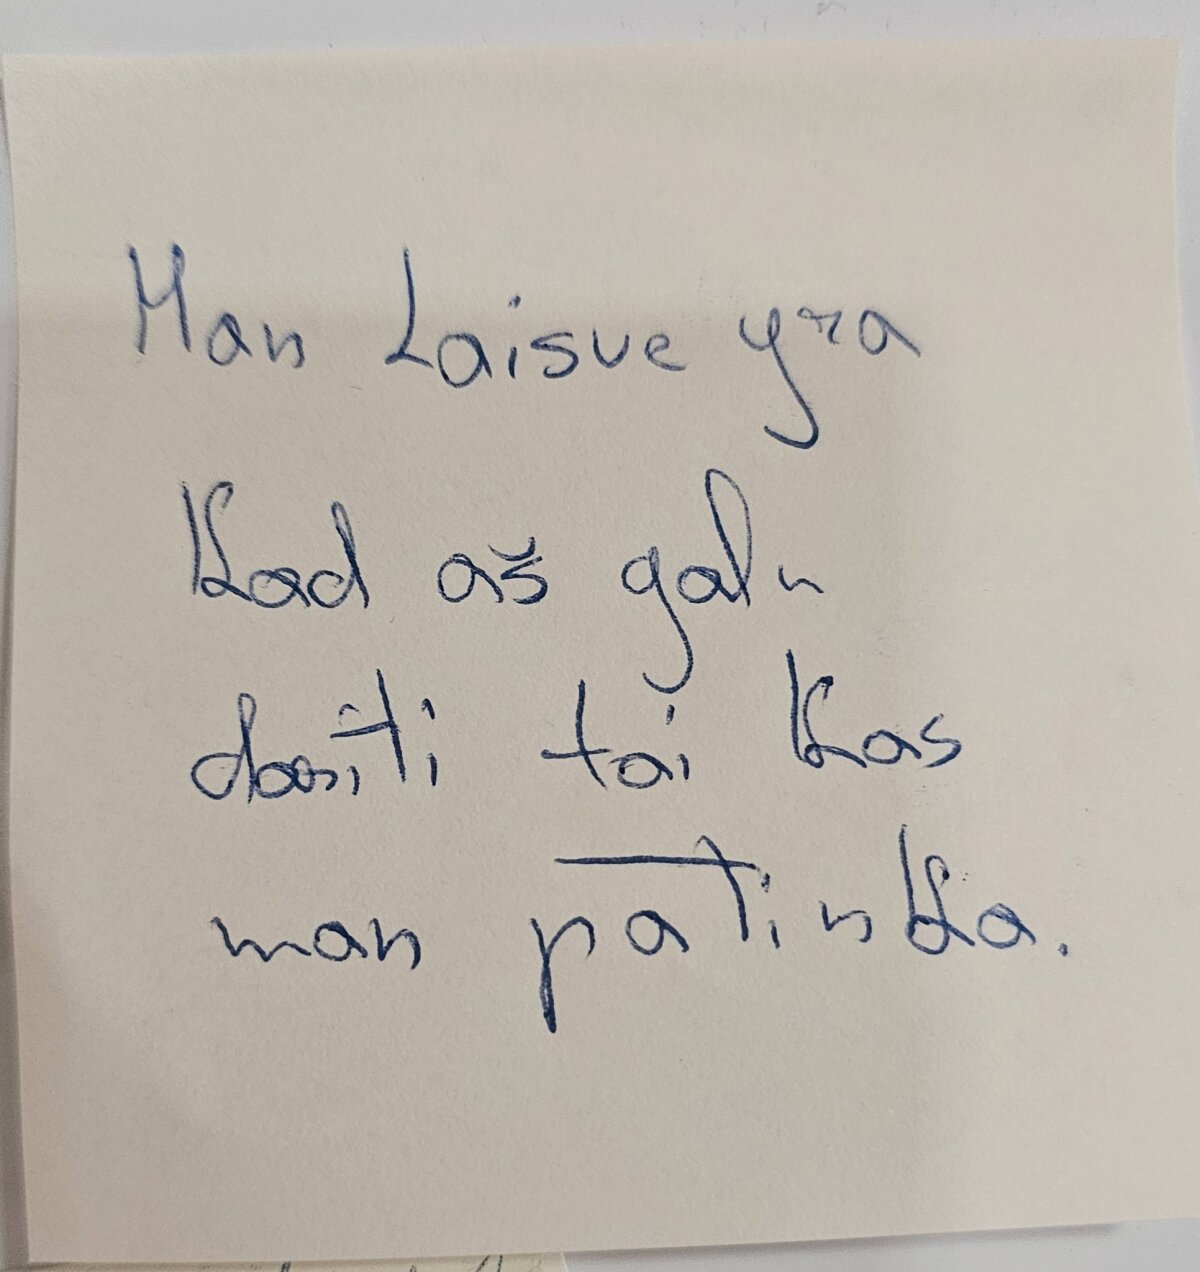 Man Laisve yra
Kad aš galu
dariti tai kas
man patinka.